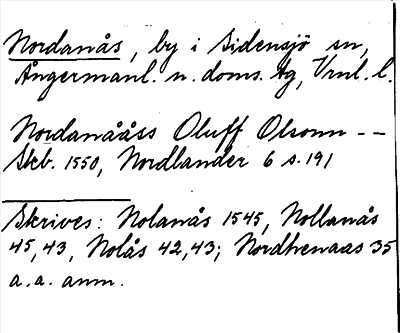 Nordanås, by i Sidensjö sn,
Ångermanl. n. doms. tg, Vrnl. l.
Nordanååss Oluff Olsonn --
Skb. 1550, Nordlander 6 s. 191
Skrives: Nolanås 1545, Nollanås
45, 43, Nolås 42, 43; Nordhenaas 35
a. a. anm.